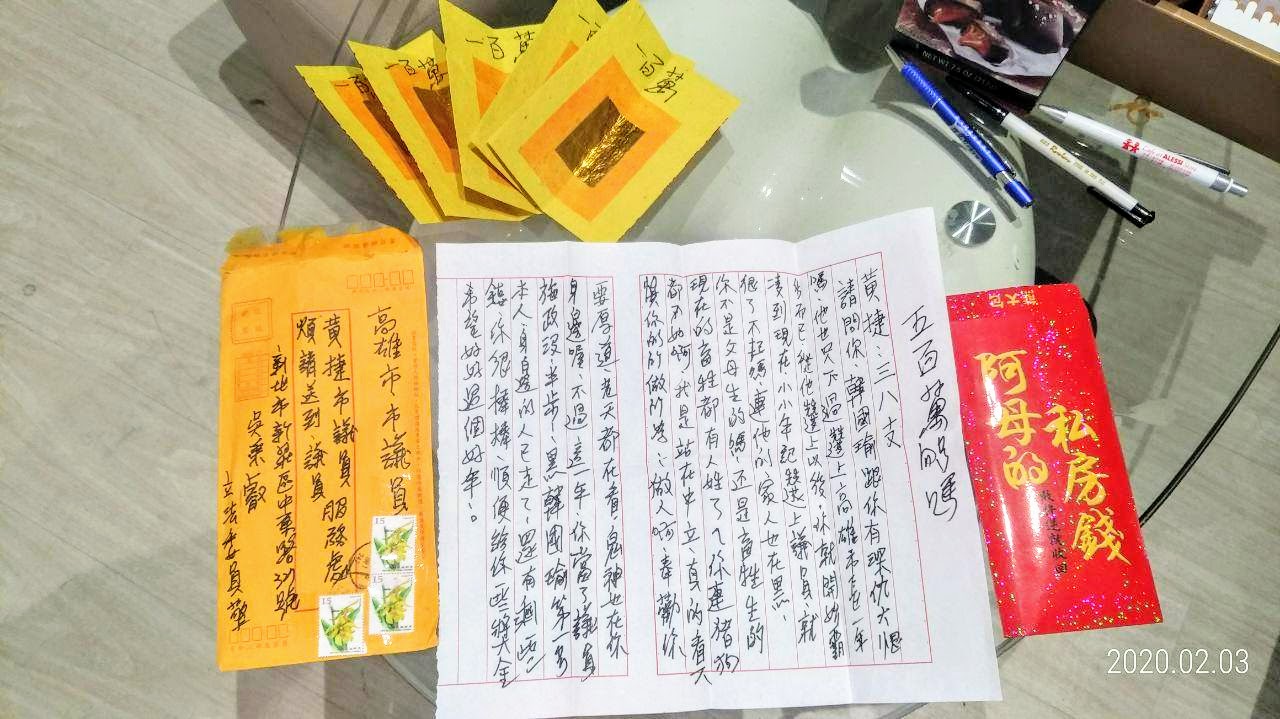 一百萬
一百萬
一百萬
一百萬
五百萬夠嗎
黃捷:三八支
請問你、韓國瑜跟你有深仇大恨
嗎、他也只不過選上高雄市長一年
多而已從他選上以後、你就開始霸
凌到現在小小年記選上議員就
很了不起嗎、連他的家人也在黑、
你不是父母生的嗎還是畜牲生的
現在的畜牲都有人姓了你連豬狗
都不如啊我是站在中立、真的看不
慣你的所做所為:做人啊奉勸你
要厚道、老天都在看鬼神也在你
身邊喔不過這一年你當了議員
施政沒半步、黑韓國瑜第一名
本人身邊的人已走了、還有剩些
錢、你很棒棒、順便給你一些獎金
希望好好過個好年。
高雄市市議員
黃捷市議員服務處
煩請送到議員
新北市新莊區中華路號
吳秉叡
立法委員
15
15
15
私房錢
阿母的
NET WT 7.5 OZ
ALESSI
2020.02.03